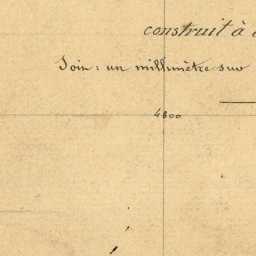 construit à
Soit : un millimètre sur
4800